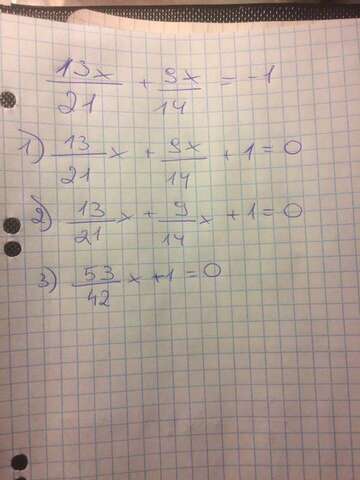 13x/21 + 9x/14 = -1
1) 13/21 x + 9x/14 + 1 = 0
2) 13/21 x + 9/14 x + 1 = 0
3) 53/42 x + 1 = 0